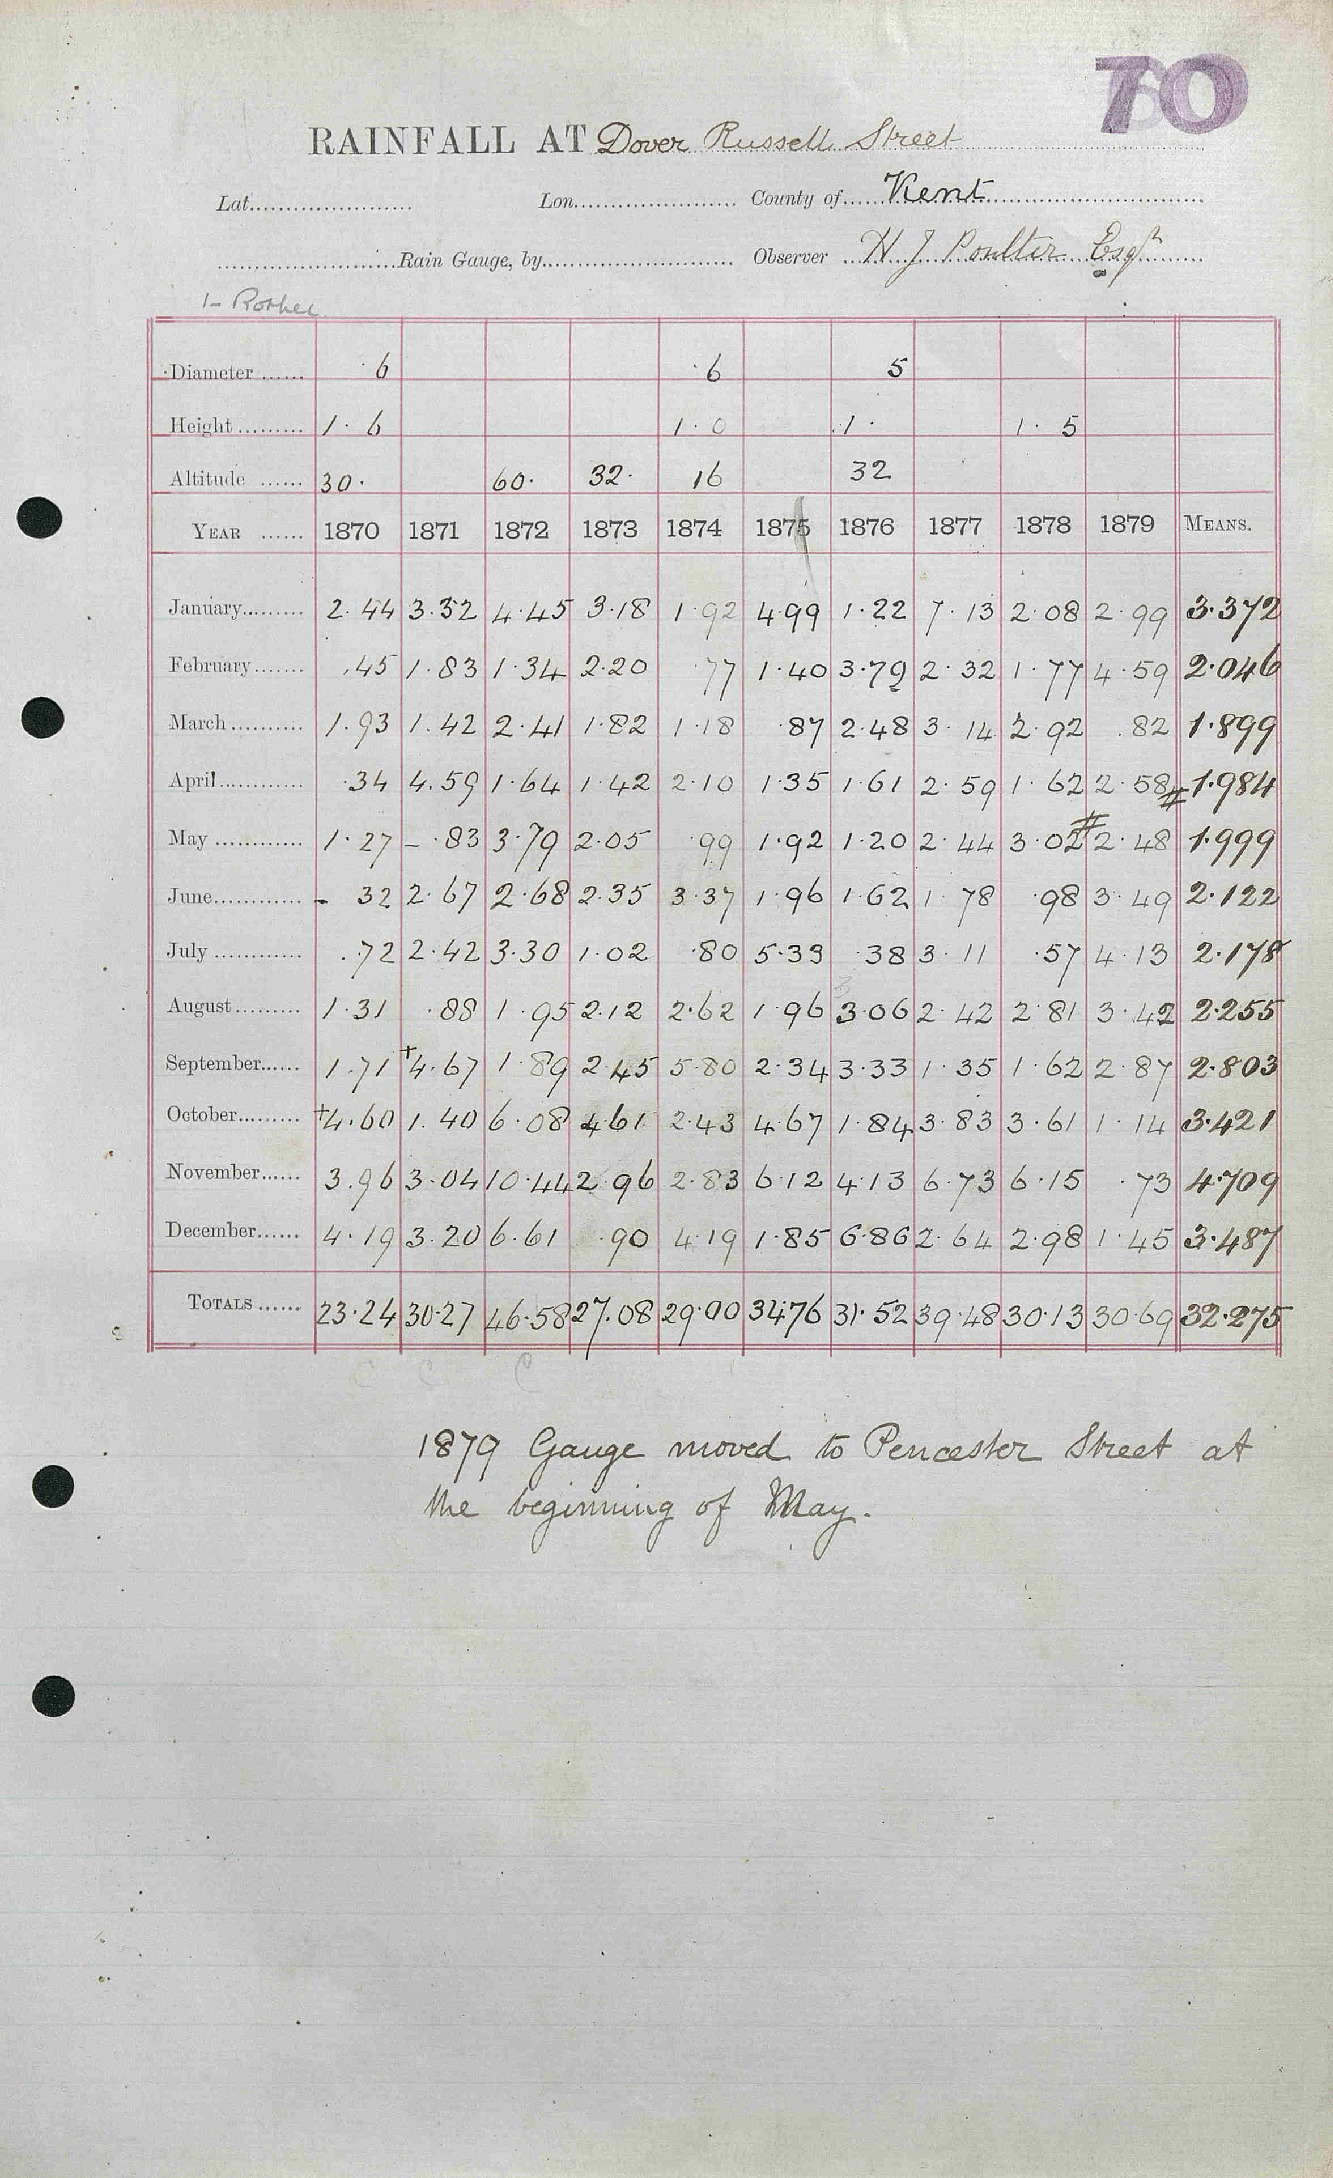 70
RAINFALL AT Dover Russell Street
Lat. Lon. County of Kent
Rain Gauge, by Observer H J Poulter Esqr
Diameter 6 6 5
Height 1. 6 1. 0 1. 1. 5
Altitude 30. 60. 32. 16 32
YEAR 1870 1871 1872 1873 1874 1875 1876 1877 1878 1879 MEANS.
January 2.44 3.32 4.45 3.18 1.92 4.99 1.22 7.13 2.08 2.99 3.372
February .45 1.83 1.34 2.20 .77 1.40 3.79 2.32 1.77 4.59 2.046
March 1.93 1.42 2.41 1.82 1.18 .87 2.48 3.14 2.92 .82 1.899
April .34 4.59 1.64 1.42 2.10 1.35 1.61 2.59 1.62 2.58 # 1.984
May 1.27 - .83 3.79 2.05 .99 1.92 1.20 2.44 3.02 # 2.48 1.999
June - 32 2.67 2.68 2.35 3.37 1.96 1.62 1.78 .98 3.49 2.122
July .72 2.42 3.30 1.02 .80 5.33 .38 3.11 .57 4.13 2.178
August 1.31 .88 1.95 2.12 2.62 1.96 3.06 2.42 2.81 3.42 2.255
September 1.71 +4.67 1.89 2.45 5.80 2.34 3.33 1.35 1.62 2.87 2.803
October +4.60 1.40 6.08 4.61 2.43 4.67 1.84 3.83 3.61 1.14 3.421
November 3.96 3.04 10.44 2.96 2.83 6.12 4.13 6.73 6.15 .73 4.709
December 4.19 3.20 6.61 .90 4.19 1.85 6.86 2.64 2.98 1.45 3.487
TOTALS 23.24 30.27 46.58 27.08 29.00 34.76 31.52 39.48 30.13 30.69 32.275
C C C
1879 Gauge moved to Pencester Street at
the beginning of May.